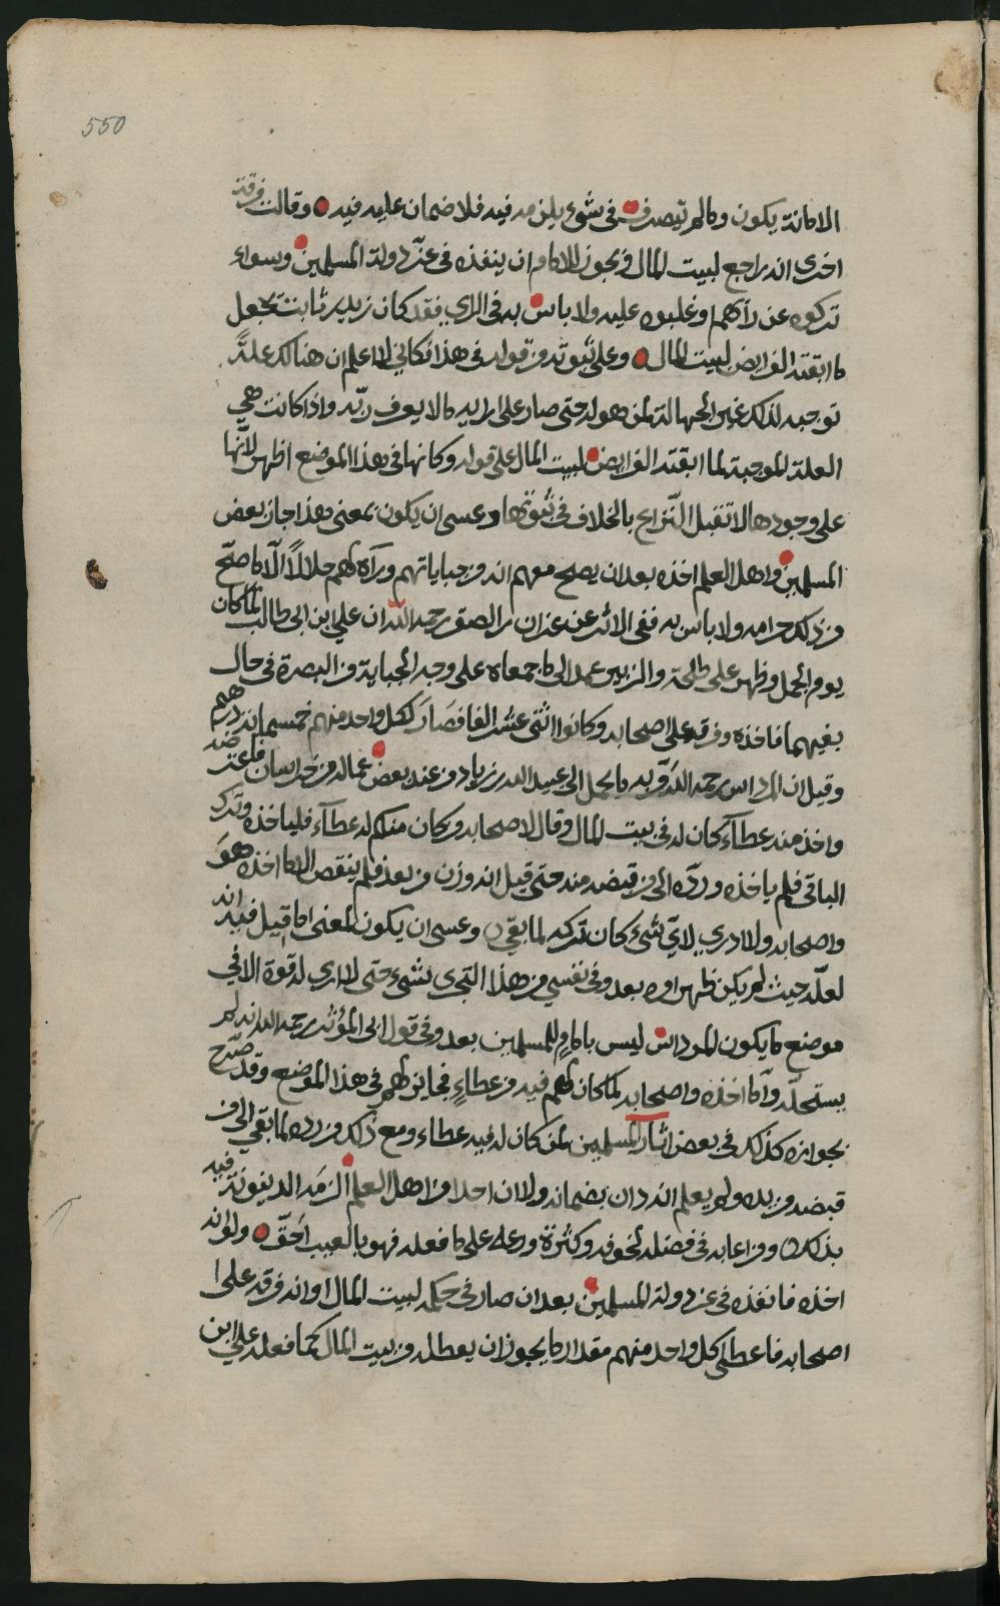 550
الامانة يكون ومالم يتصرف في شيء يلزمه فيه فلا ضمان عليه فيه وقالت فرقة
اخرى انه راجع لبيت المال ويجوز للامام ان ينفذه في عز دولة المسلمين وسواء
تركوه عن رأيهم او غلبوه عليه ولا باس به في الراي فقد كان زيد بن ثابت يجعل
ما ابقته الفرايض لبيت المال وعلى ثبوته من قوله في هذا فكاني لا اعلم ان هنالك علةً
توجبه لذلك غير الجهالة لمن هو له حتى صار على اياديه مالا يعرف ربّه واذا كانت هي
العلة الموجبة لما ابقته الفرايض لبيت المال على قوله وكانها في هذا الموضع اظهر لانّها
على وجودها لا تقبل النّزاع بالخلاف في ثبوتها وعسى ان يكون بمعنى هذا اجاز بعض
المسلمين واهل العلم اخذه بعد ان يصح معهم انه من جباياتهم ورآه لهم حلالًا الّا ما صحّ
من ذلك حرامه ولا باس به ففي الاثر عن عزان بن الصقر رحمه الله ان علي ابن ابي طالب لما كان
يوم الجمل وظهر على طلحة والزبير عمد الى ما جمعاه على وجه الجباية من البصرة في حال
بغيهما فاخذه وفرقه على اصحابه وكانوا اثنى عشر الفا فصار لكل واحد منهم خمسماية درهم
وقيل ان المرداس رحمه الله مرّ به مال يحمل الى عبيد الله بن زياد من عند بعض عماله من خراسان فاعترضه
واخذ منه عطآءً كان له في بيت المال وقال لاصحابه من كان منكم له عطآء فلياخذه وترك
الباقي فلم ياخذه وردّه الى من قبضه منه حتى قيل انه وزن من بعد فلم ينقص الا ما اخذه هوَ
واصحابه ولا ادري لايّ شيء كان تركه لما بقي وعسى ان يكون لمعنى ما قيل فيه انه
لعلّه حيث لم يكن ظهر امره بعد وفي نفسي من هذا التجري شيء حتى لا ارى له قوة الا في
موضع ما يكون المرداس ليس بامامٍ للمسلمين بعد وفي قول ابي المؤثر رحمه الله انه لم
يستحلّه وامّا اخذه واصحابه لما كان لهم فيه من عطاءٍ فجايز لهم في هذا الموضع وقد صرّح
بجوازه كذلك في بعض اثار المسلمين لمن كان له فيه عطاء ومع ذلك من رده لما بقي الى من
قبضه من يده ولم يعلم انه دان بضمانه ولا ان احدا من اهل العلم الزمه الدينونة فيه
بذلك ومن اعابه في فضله لخوفه وكثرة ورعه على ما فعله فهو بالعيب احَقّ ولو انه
اخذه فانفذه في عز دولة المسلمين بعد ان صار في حكمه لبيت المال او انه فرقه على
اصحابه فاعطى كل واحد منهم مقدار ما يجوز ان يعطى له من بيت المال كما فعله علي ابن